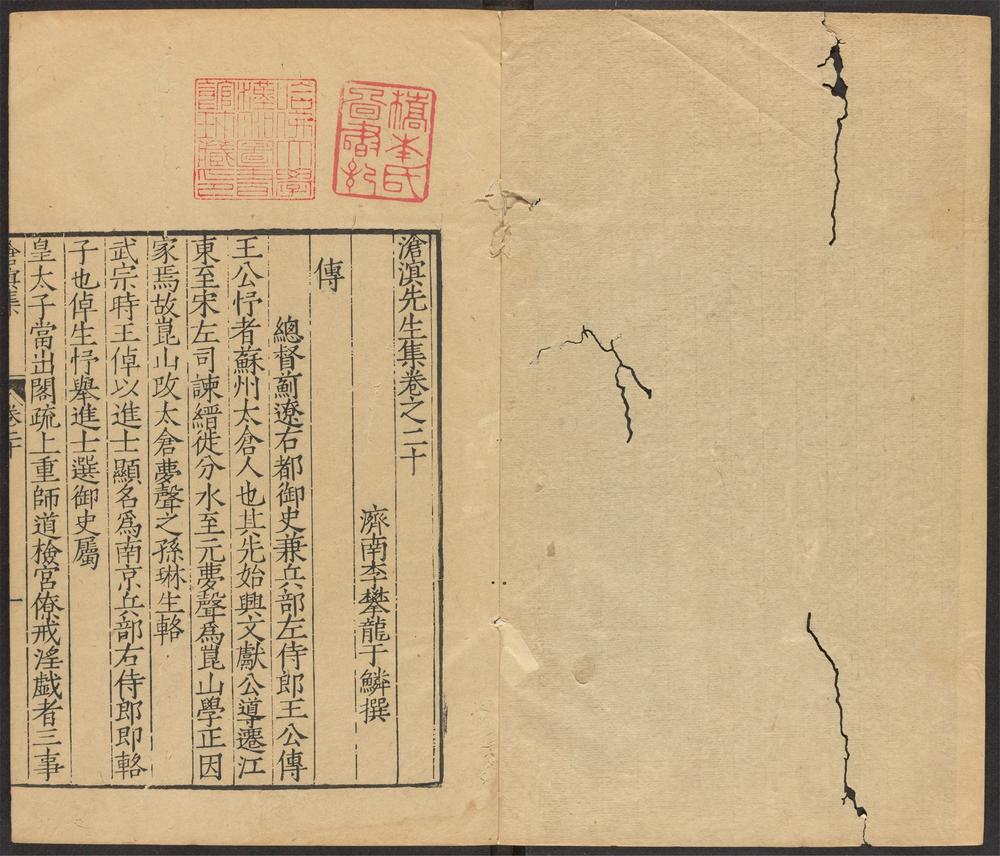 滄溟先生集卷之二十
濟南李攀龍于鱗撰
傳
總督薊遼右都御史兼兵部左侍郎王公傳
王公忬者蘇州太倉人也其先始興文獻公導遷江
東至宋左司諫縉徙分水至元夢聲爲崑山學正因
家焉故崑山攻太倉夢聲之孫琳生輅
武宗時王倬以進士顯名爲南京兵部右侍郎即輅
子也倬生忬舉進士選御史屬
皇太子當出閣疏上重師道檢宮僚戒淫戲者三事
滄溟集 卷二十 一
橋本氏
圖書記
哈佛大學
漢和圖書
館珍藏印